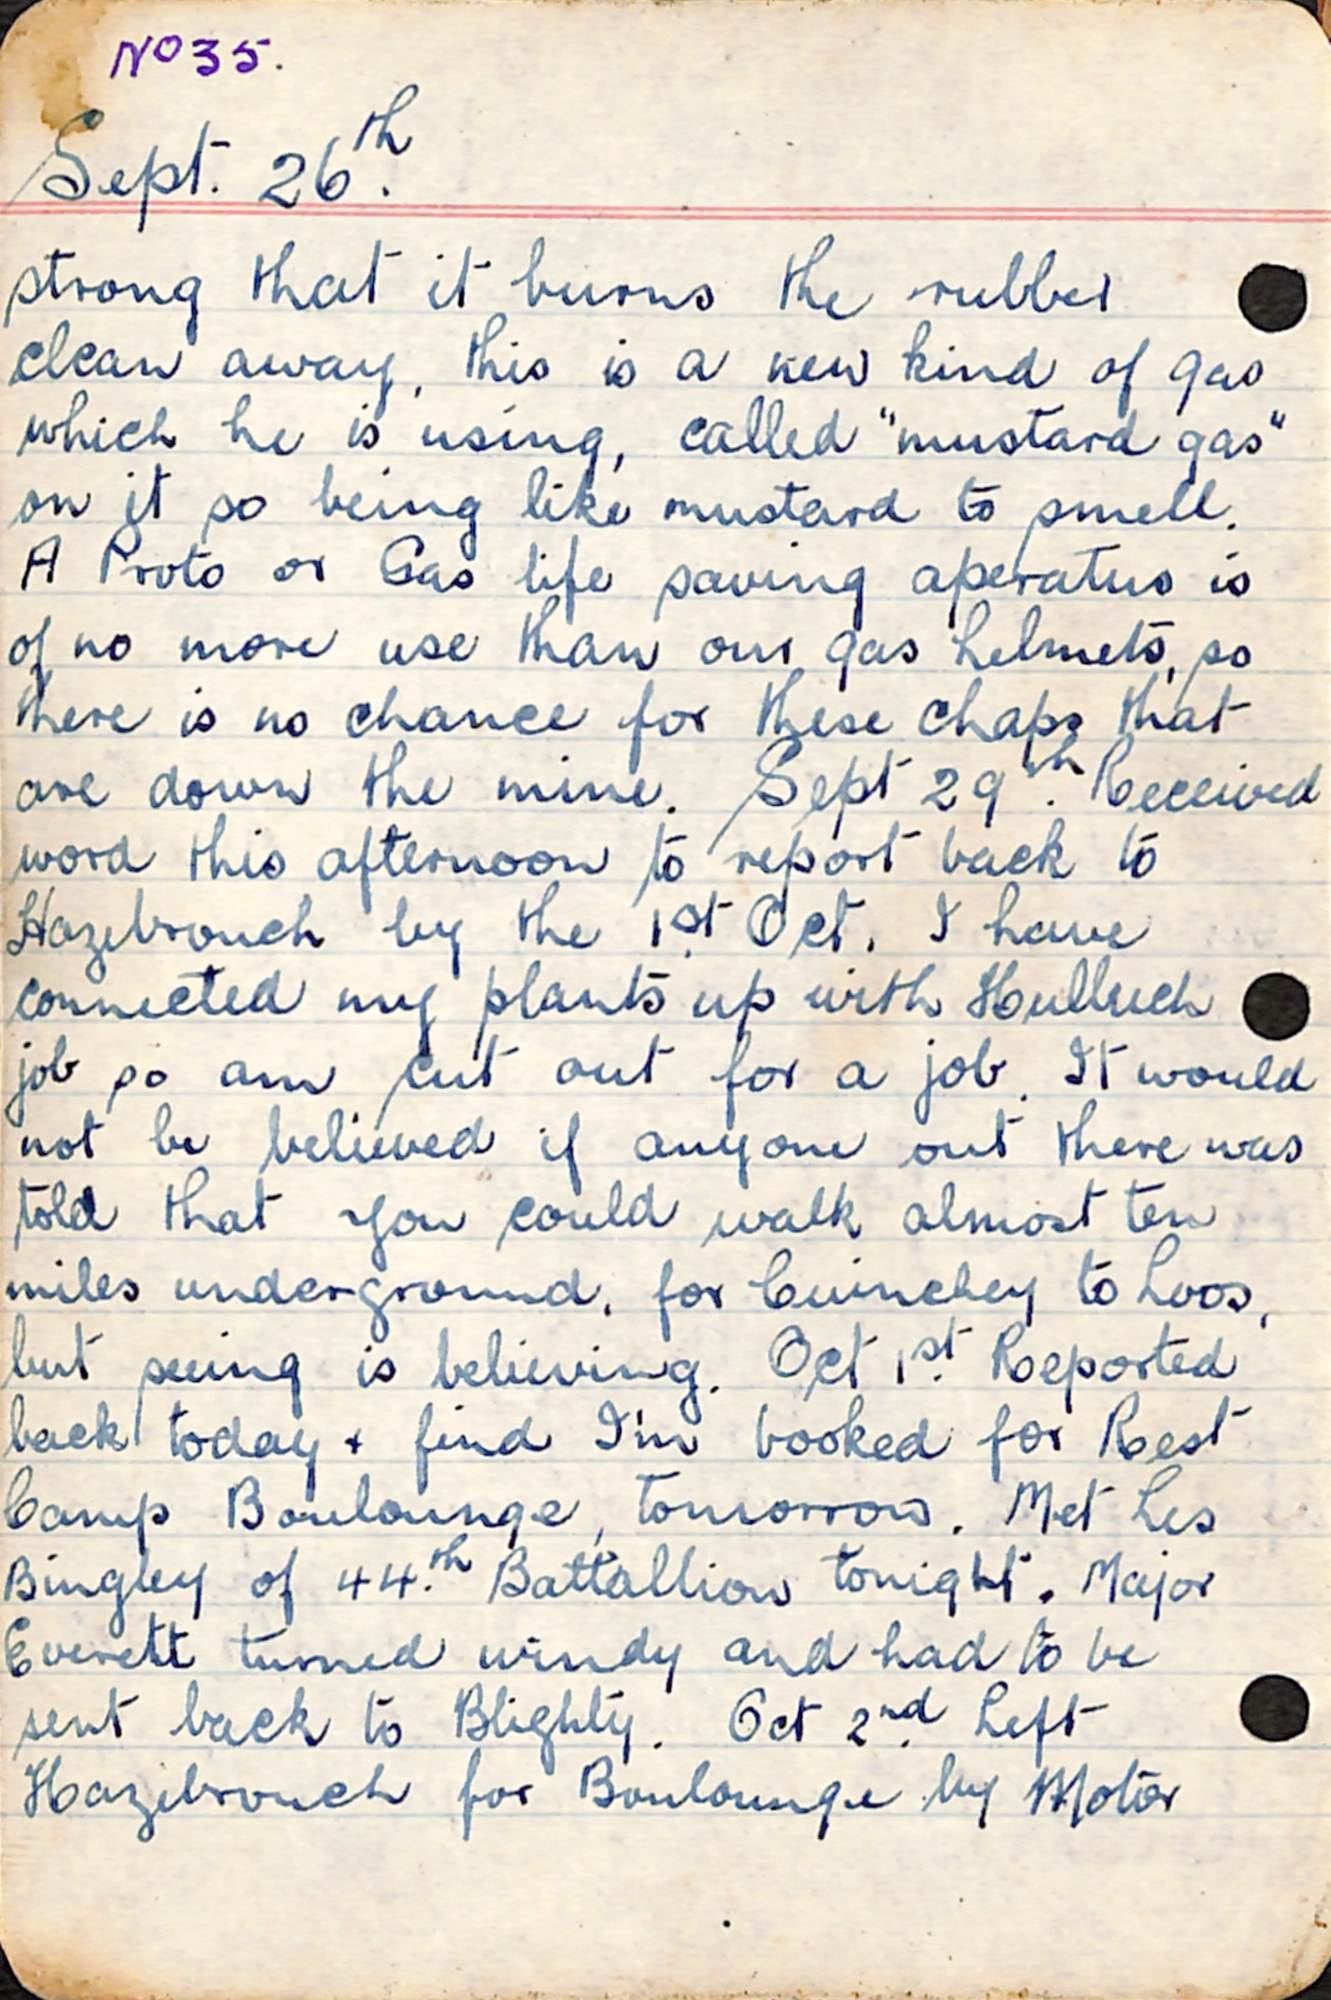 No 35.
Sept. 26th.
strong that it burns the rubber
clean away, this is a new kind of gas
which he is using, called "mustard gas"
on it so being like mustard to smell.
A Proto or Gas life saving aperatus is
of no more use than our gas helmets, so
there is no chance for these chaps that
are down the mine. Sept 29th. Received
word this afternoon to report back to
Hazebrouch by the 1st Oct. I have
connected my plants up with Hulluch
job so am cut out for a job. It would
not be believed if anyone out there was
told that you could walk almost ten
miles underground, for Cuinchey to Loos,
but seeing is believing. Oct 1st. Reported
back today + find I'm booked for Rest
Camp Boulounge, tomorrow. Met Les
Bingley of 44.th Battallion tonight. Major
Everett turned windy and had to be
sent back to Blighty. Oct 2nd. Left
Hazebrouch for Boulounge by Motor